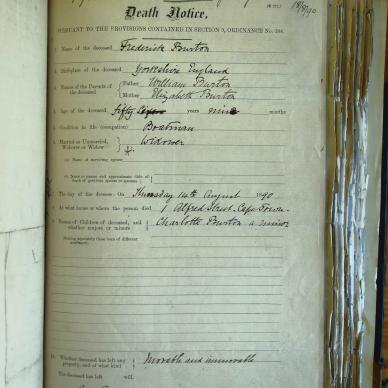 18/8/90
Death Notice,
PURSUANT TO THE PROVISIONS CONTAINED IN SECTION 9, ORDINANCE No. 104.
1. Name of the deceased Frederick Burton
2. Birthplace of the deceased Yorkshire England
3. Names of the Parents of the deceased Father William Burton
Mother Elizabeth Burton
4. Age of the deceased fifty years nine months
5. Condition in life (occupation) Boatman
6. Married or Unmarried, Widower or Widow Widower
(a) Name of surviving spouse
(b) Name or names and approximate date of death of previous spouse or spouses
7. The day of the decease: On Thursday 14th August 1890
8. At what house or where the person died 1 Alfred Street Cape Town
9. Names of Children of deceased, and whether majors or minors Charlotte Burton a minor
10. Whether deceased has left any property, and of what kind Movable and immovable
The deceased has left will.